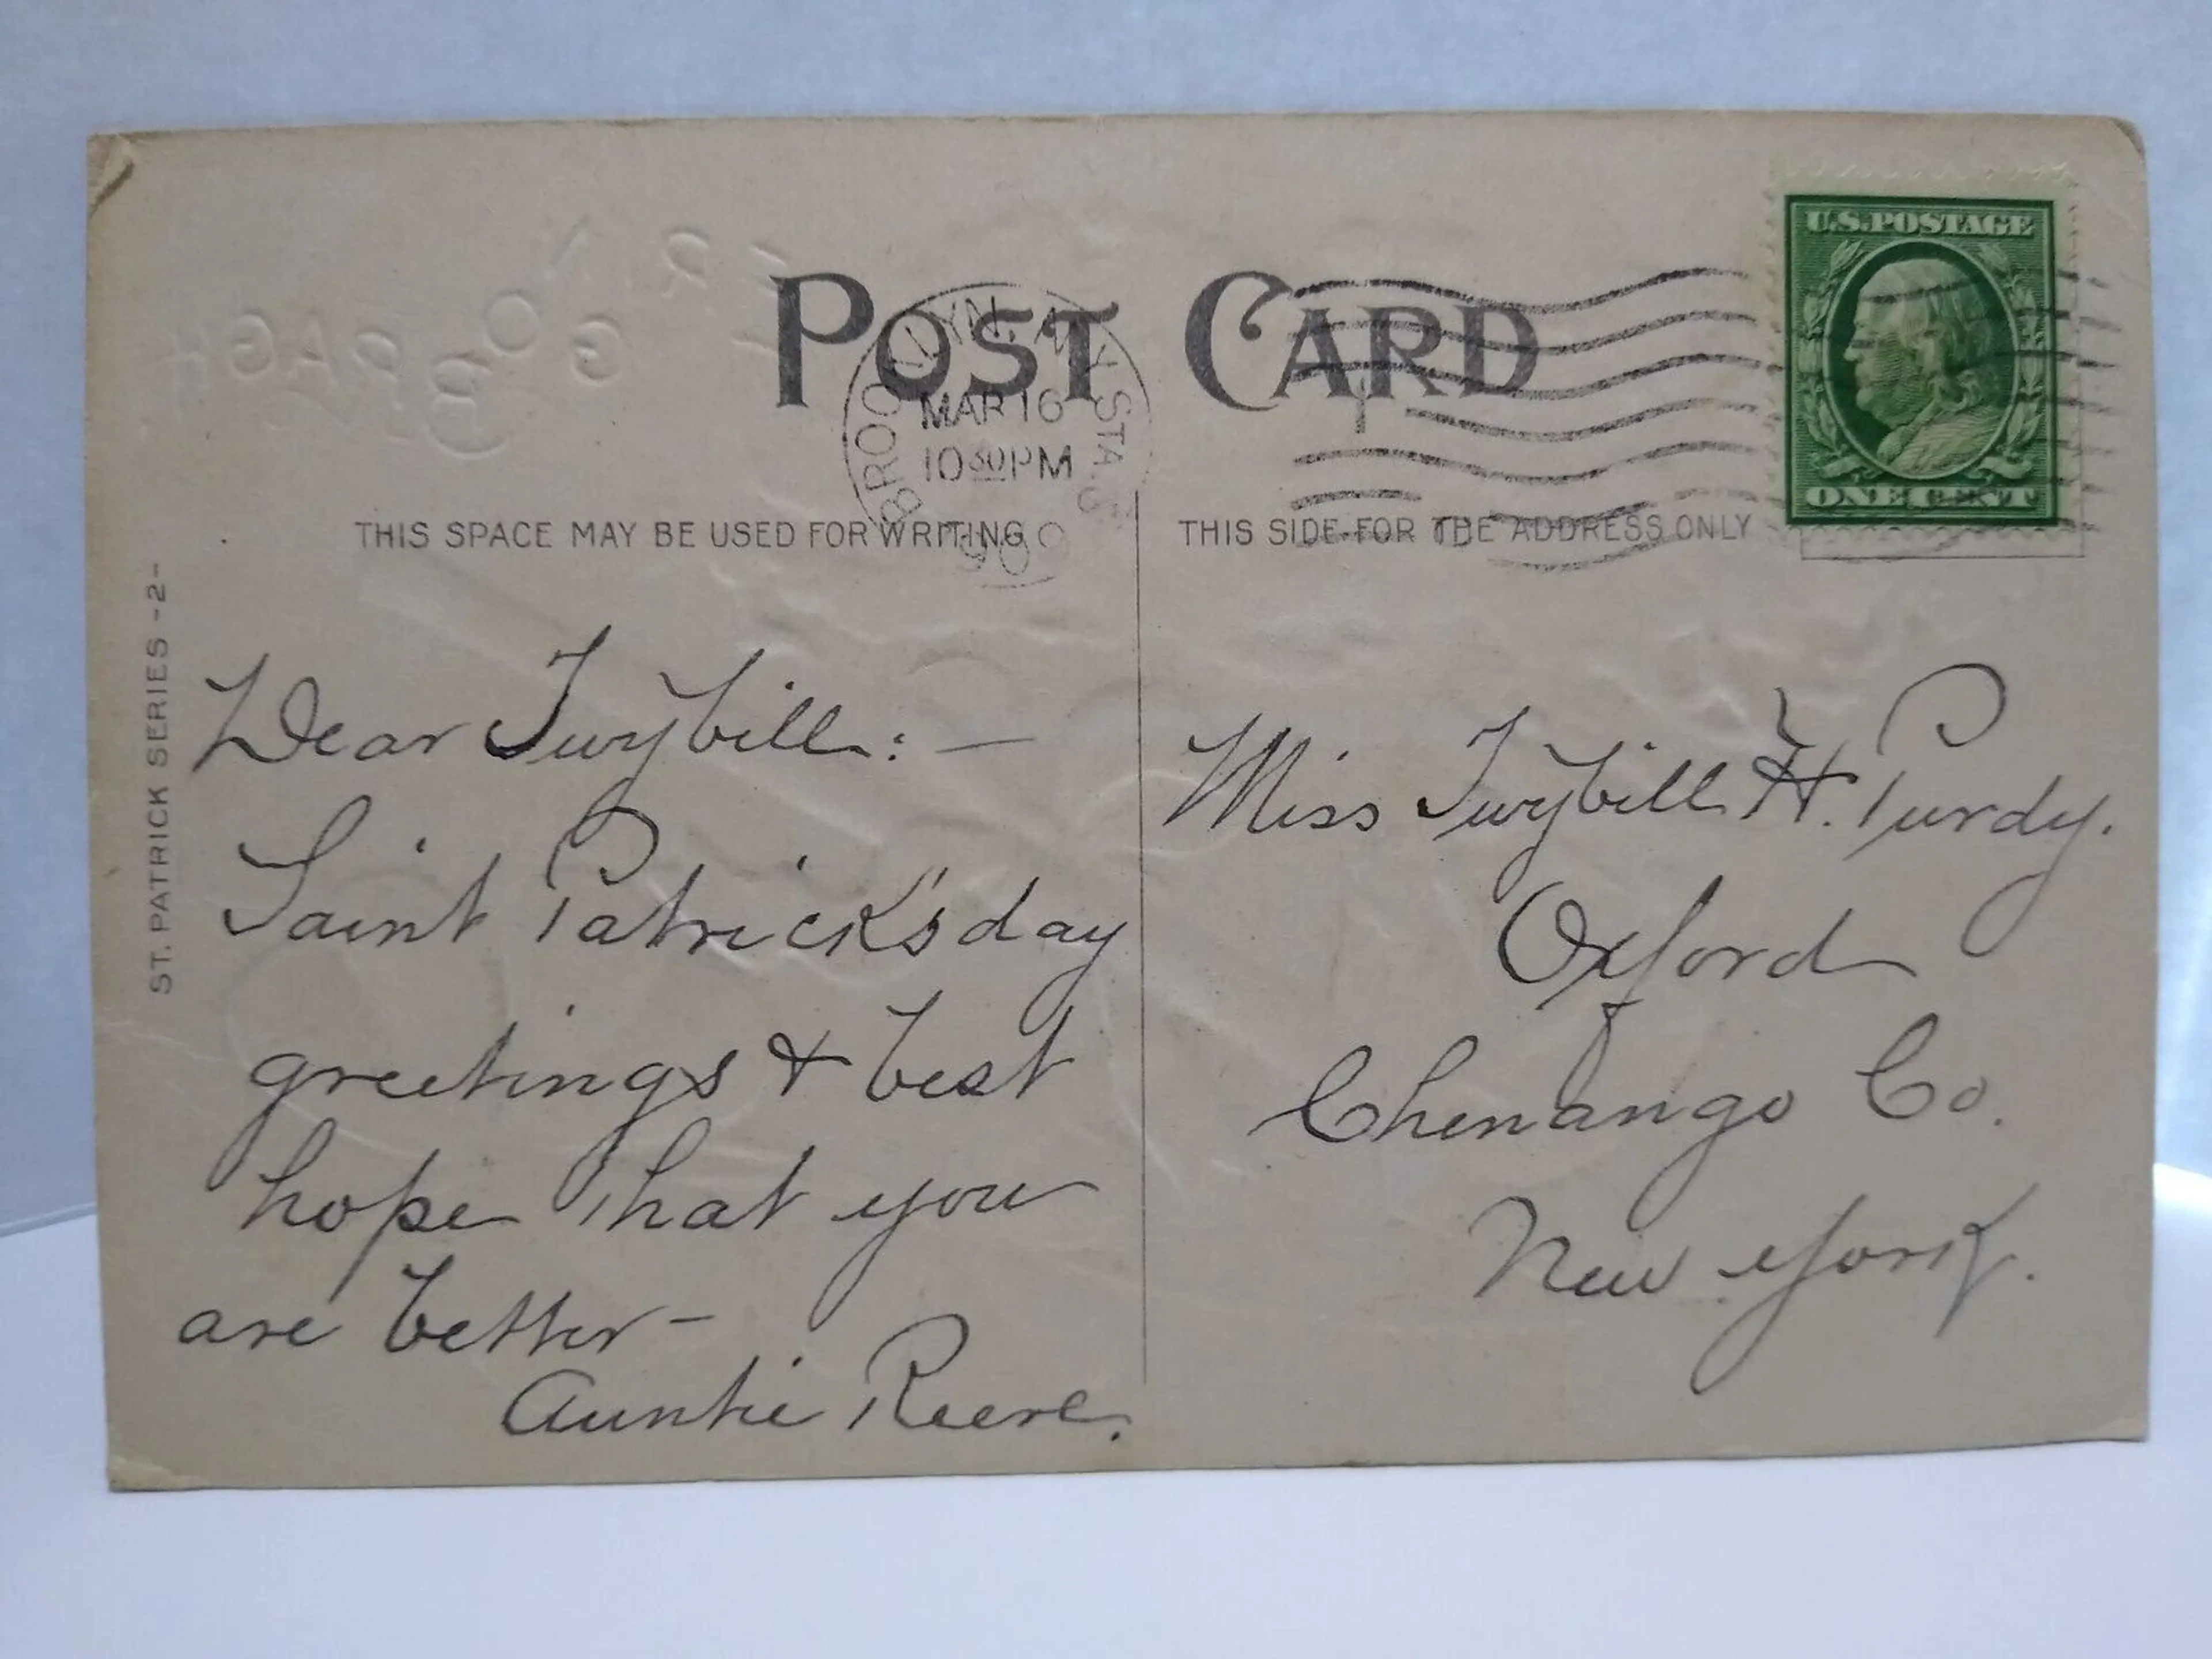 POST CARD
BROOKLYN, N.Y. STA.
MAR 16
10 30 PM
U.S. POSTAGE
ONE CENT
THIS SPACE MAY BE USED FOR WRITING
THIS SIDE FOR THE ADDRESS ONLY
ST. PATRICK SERIES -2-
Dear Twybill: —
Saint Patrick's day
greetings & best
hope that you
are better –
Auntie Reeve.
Miss Twybill H. Purdy.
Oxford
Chenango Co.
New York.